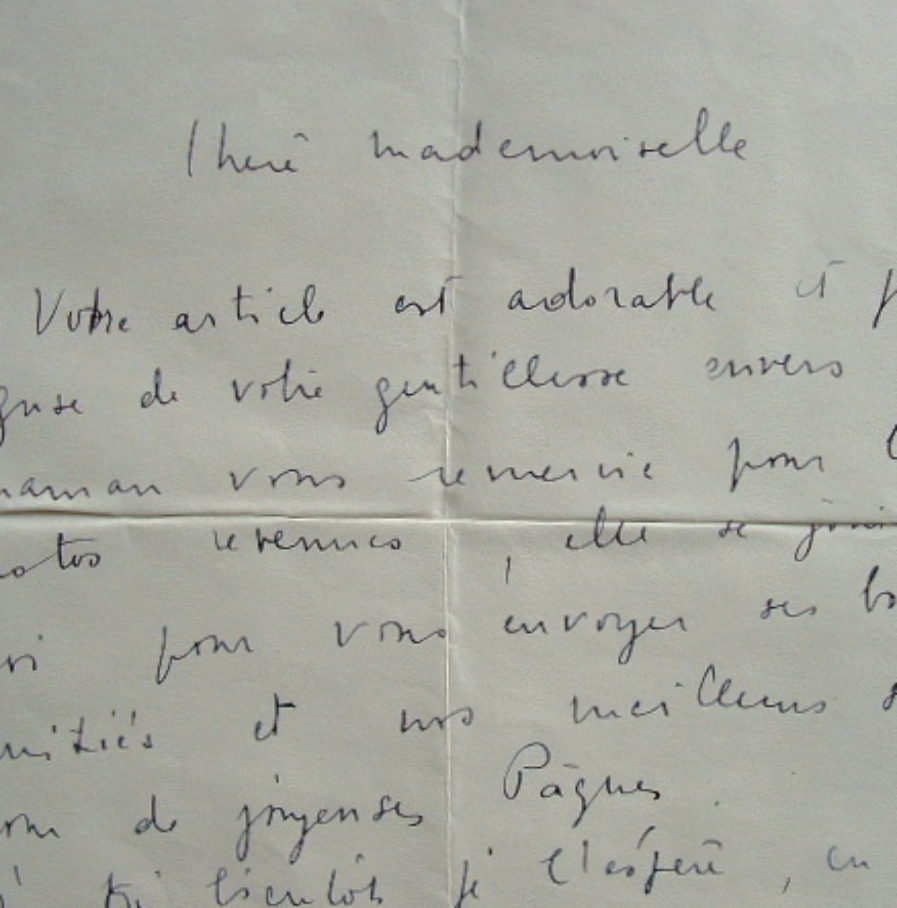 Chère mademoiselle
Votre article est adorable et p
gnse de votre gentillesse envers
maman vous remercie pour l
otos revenues, elle se join
oi pour vous envoyer ses bo
mitiés et nos meilleurs s
our de joyeuses Pâques.
bientôt je l'espère, en